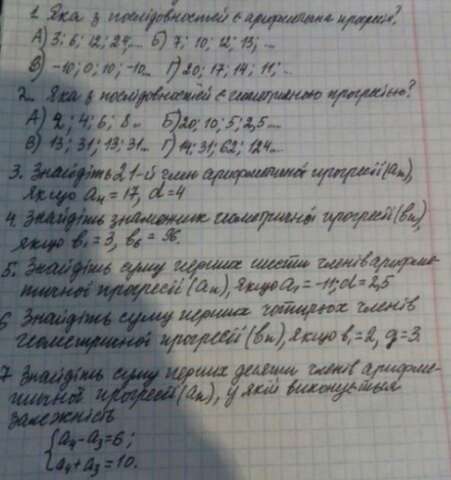 1. Яка з послідовностей є арифметична прогресія?
А) 3; 6; 12; 24,... Б) 7; 10; 12; 13; ...
В) -10; 0; 10; -10... Г) 20; 17; 14; 11;...
2. Яка з послідовностей є геометричною прогресією?
А) 2; 4; 6; 8... Б) 20; 10; 5; 2,5....
В) 13; 31; 13; 31... Г) 14; 31; 62; 124...
3. Знайдіть 21-й член арифметичної прогресії (an),
якщо a1 = 17, d = 4
4. Знайдіть знаменник геометричної прогресії (bn),
якщо b1 = 3, b6 = 96.
5. Знайдіть суму перших шести членів арифме-
тичної прогресії (an), якщо a1 = -11; d = 2,5
6 Знайдіть суму перших чотирьох членів
геометричної прогресії (bn), якщо b1 = 2, q = 3.
7 Знайдіть суму перших десяти членів арифме-
тичної прогресії (an), у якій виконується
залежність
{a4 - a3 = 6;
a4 + a3 = 10.